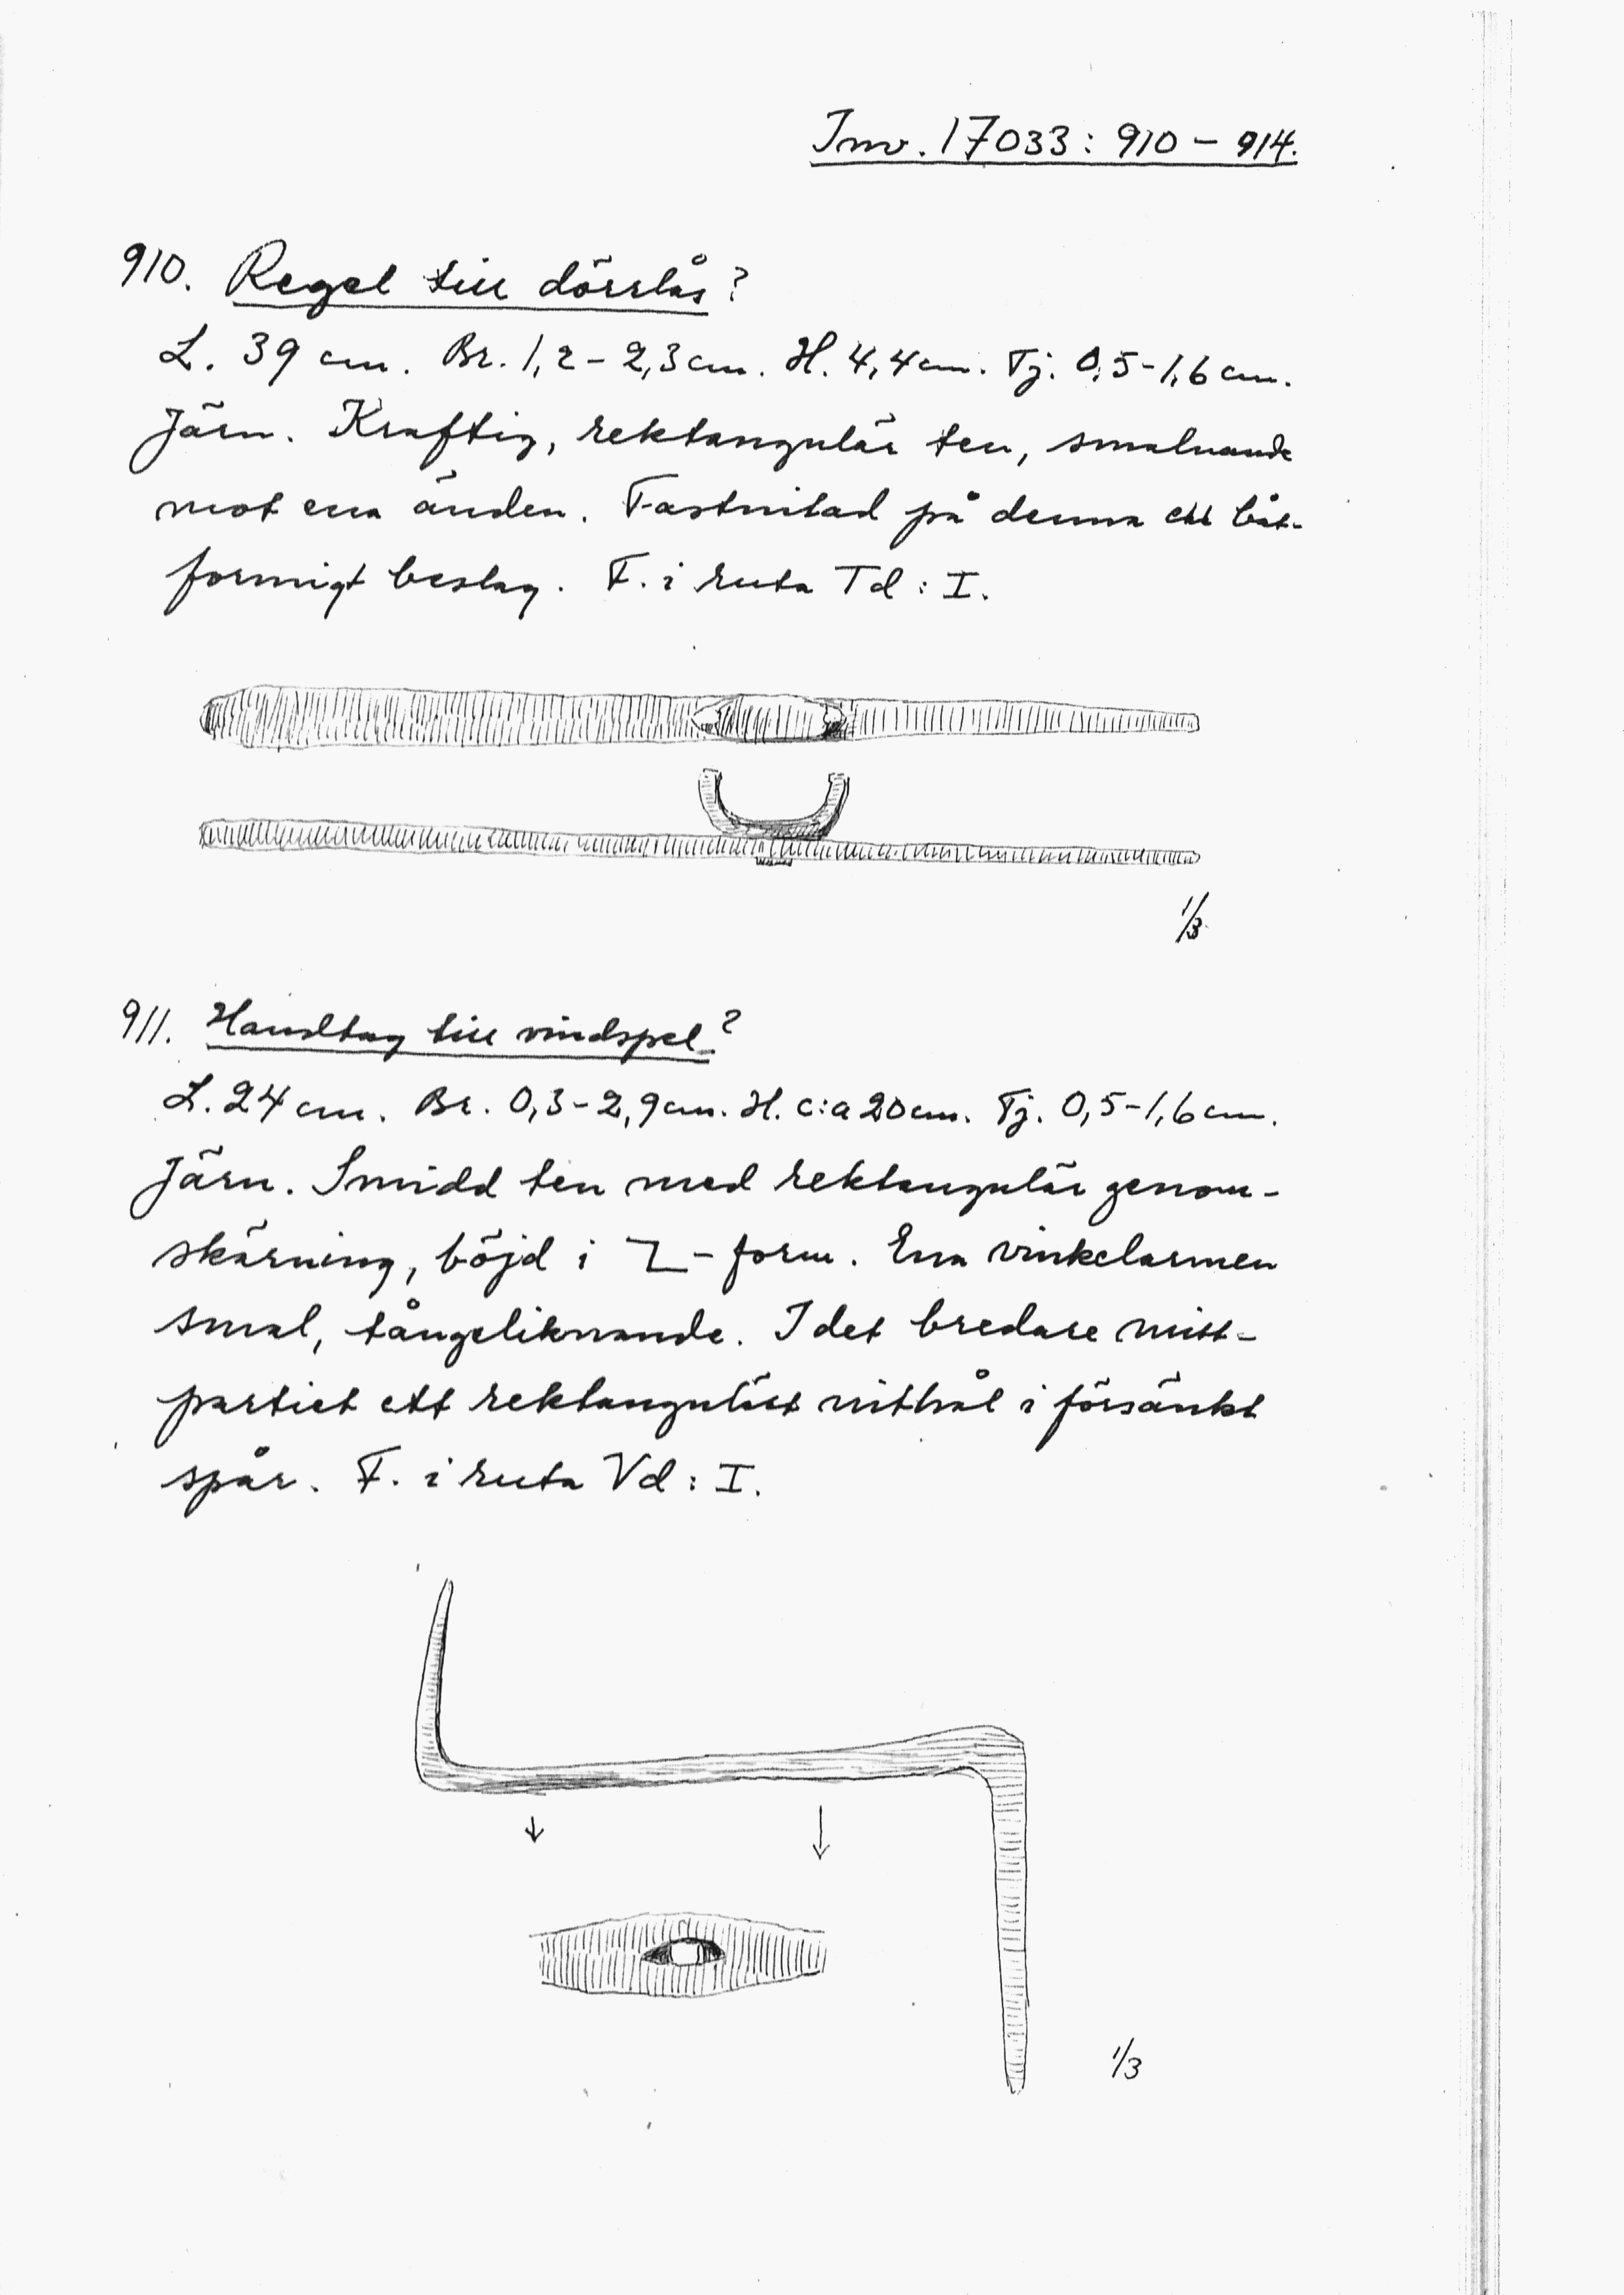 Inv. 17033: 910 – 914.
910. Regel till dörrlås?
L. 39 cm. Br. 1,2 – 2,3 cm. H. 4,4 cm. Tj. 0,5 – 1,6 cm.
Järn. Kraftig, rektangulär ten, smalnande
mot ena änden. Fastnitad på denna ett båt-
formigt beslag. F. i ruta Td : I.
1/3
911. Handtag till vindspel?
L. 24 cm. Br. 0,3 – 2,9 cm. H. c:a 20 cm. Tj. 0,5 – 1,6 cm.
Järn. Smidd ten med rektangulär genom-
skärning, böjd i Z – form. Ena vinkelarmen
smal, tångeliknande. I det bredare mitt-
partiet ett rektangulärt nithål i försänkt
spår. F. i ruta Vd : I.
1/3